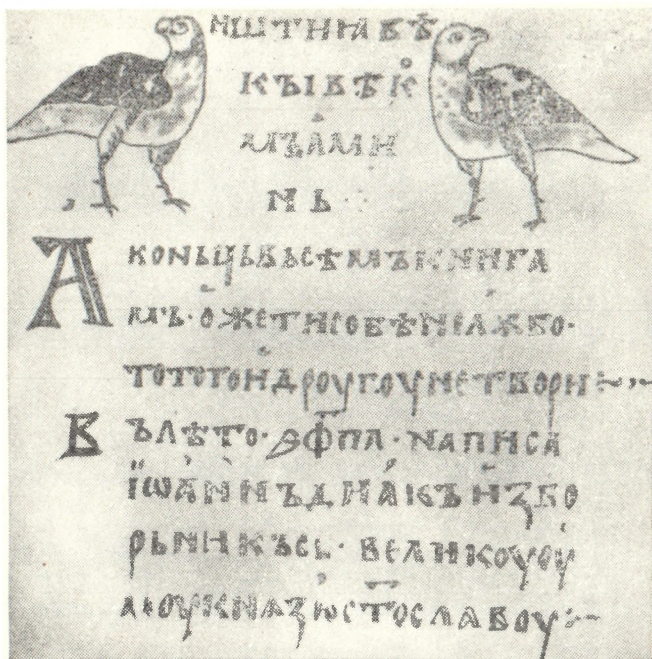 иштиꙗвѣ
кꙑвѣкⷪ
мъами
нь
А коньцьвьсѣмъкнига
мъ·ожетисобѣнелѫбо·
тотогоидроугоунетвори:~
В ълѣто·҂ѕфпа·написа
їѡаннъдиакъизбо
рьникъсь·великоуоу
моукнѧзюстославоу:~